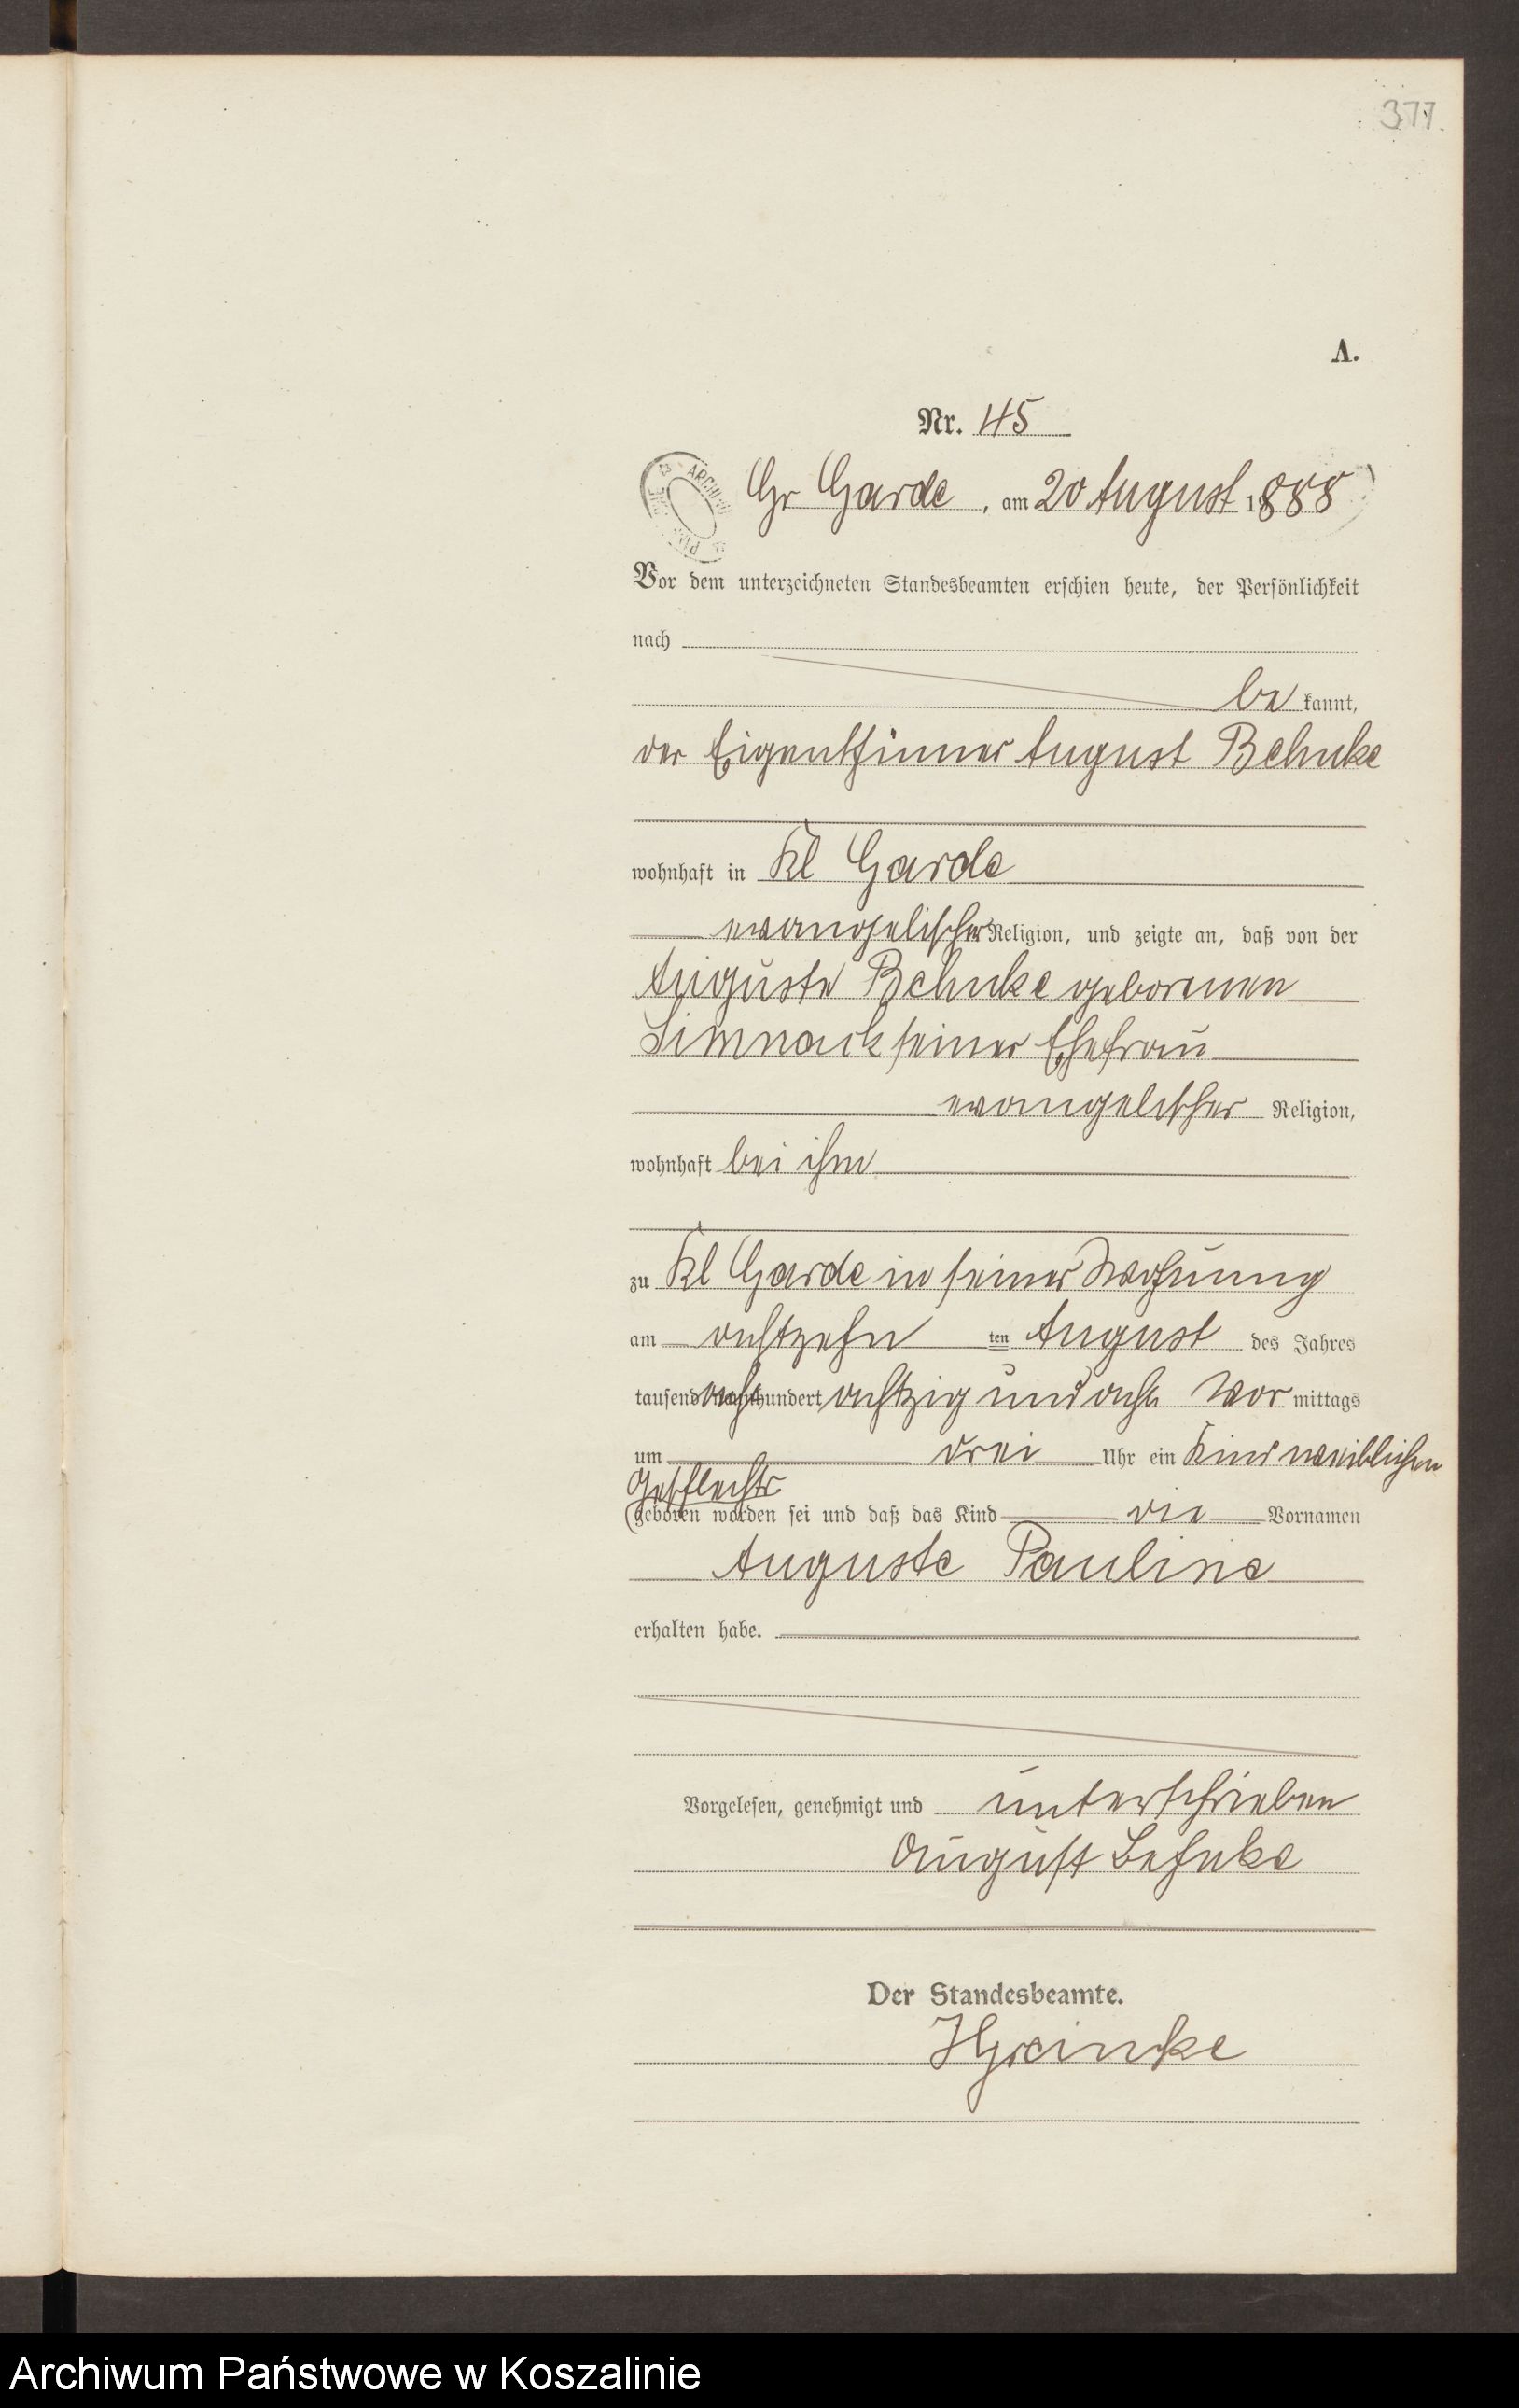 377.
A.
Nr. 45
Gr Garde, am 20 August 1888
Vor dem unterzeichneten Standesbeamten erschien heute, der Persönlichkeit
nach
be kannt,
der Eigenthümer August Behnke
wohnhaft in Kl Garde
evangelischer Religion, und zeigte an, daß von der
Auguste Behnke geborenen
Simnack seiner Ehefrau
evangelischer Religion,
wohnhaft bei ihm
zu Kl Garde in seiner Wohnung
am achtzehn ten August des Jahres
tausend acht hundert achtzig und acht Vor mittags
um drei Uhr ein Kind weiblichen
Geschlechts
geboren worden sei und daß das Kind die Vornamen
Auguste Pauline
erhalten habe.
Vorgelesen, genehmigt und unterschrieben
August Behnke
Der Standesbeamte.
Archiwum Państwowe w Koszalinie